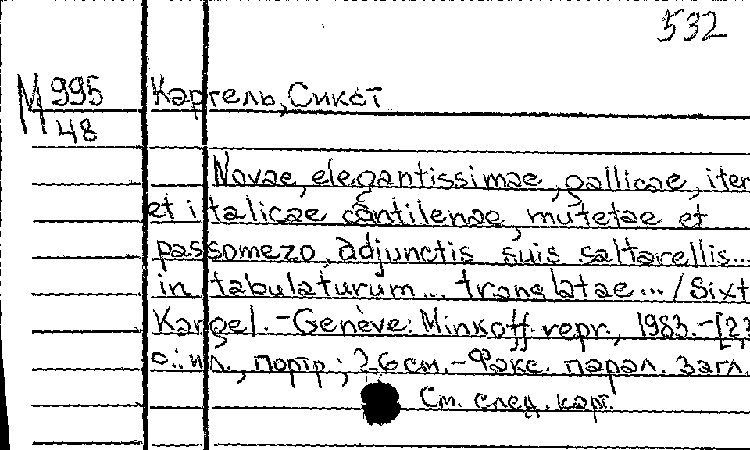 532
М 995
48
Каргель, Сикст
Novae, elegantissimae, gallicae, iter
et italicae cantilenae, mutetae et
passomezo, adjunctis suis saltarellis...
in tabulaturum... translatae... / Sixt
Kargel. - Genève: Minkoff repr., 1983. - [23
с.: ил., портр.; 26 см. - Факс. парал. загл.
См. след. карт.